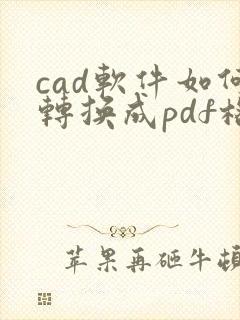 cad軟件如何
轉換成pdf格
苹果再砸牛頓